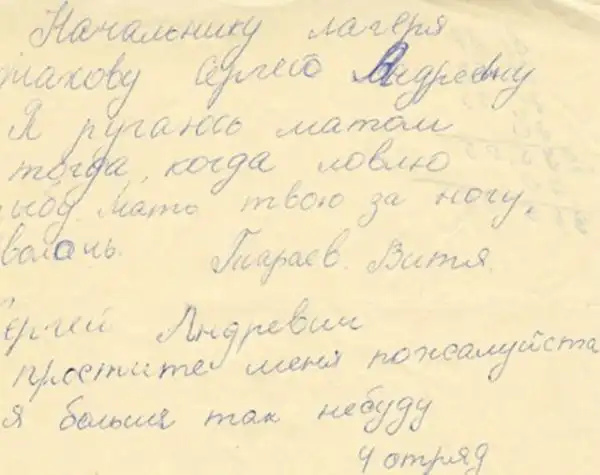 Начальнику лагеря
макову Сергею Андреевичу
Я ругаюсь матом
тогда, когда ловлю
рыбу. Мать твою за ногу,
волочь. Тиараев. Витя.
Сергей Андревич
простите меня пожалуйста
я больше так небуду
4 отряд